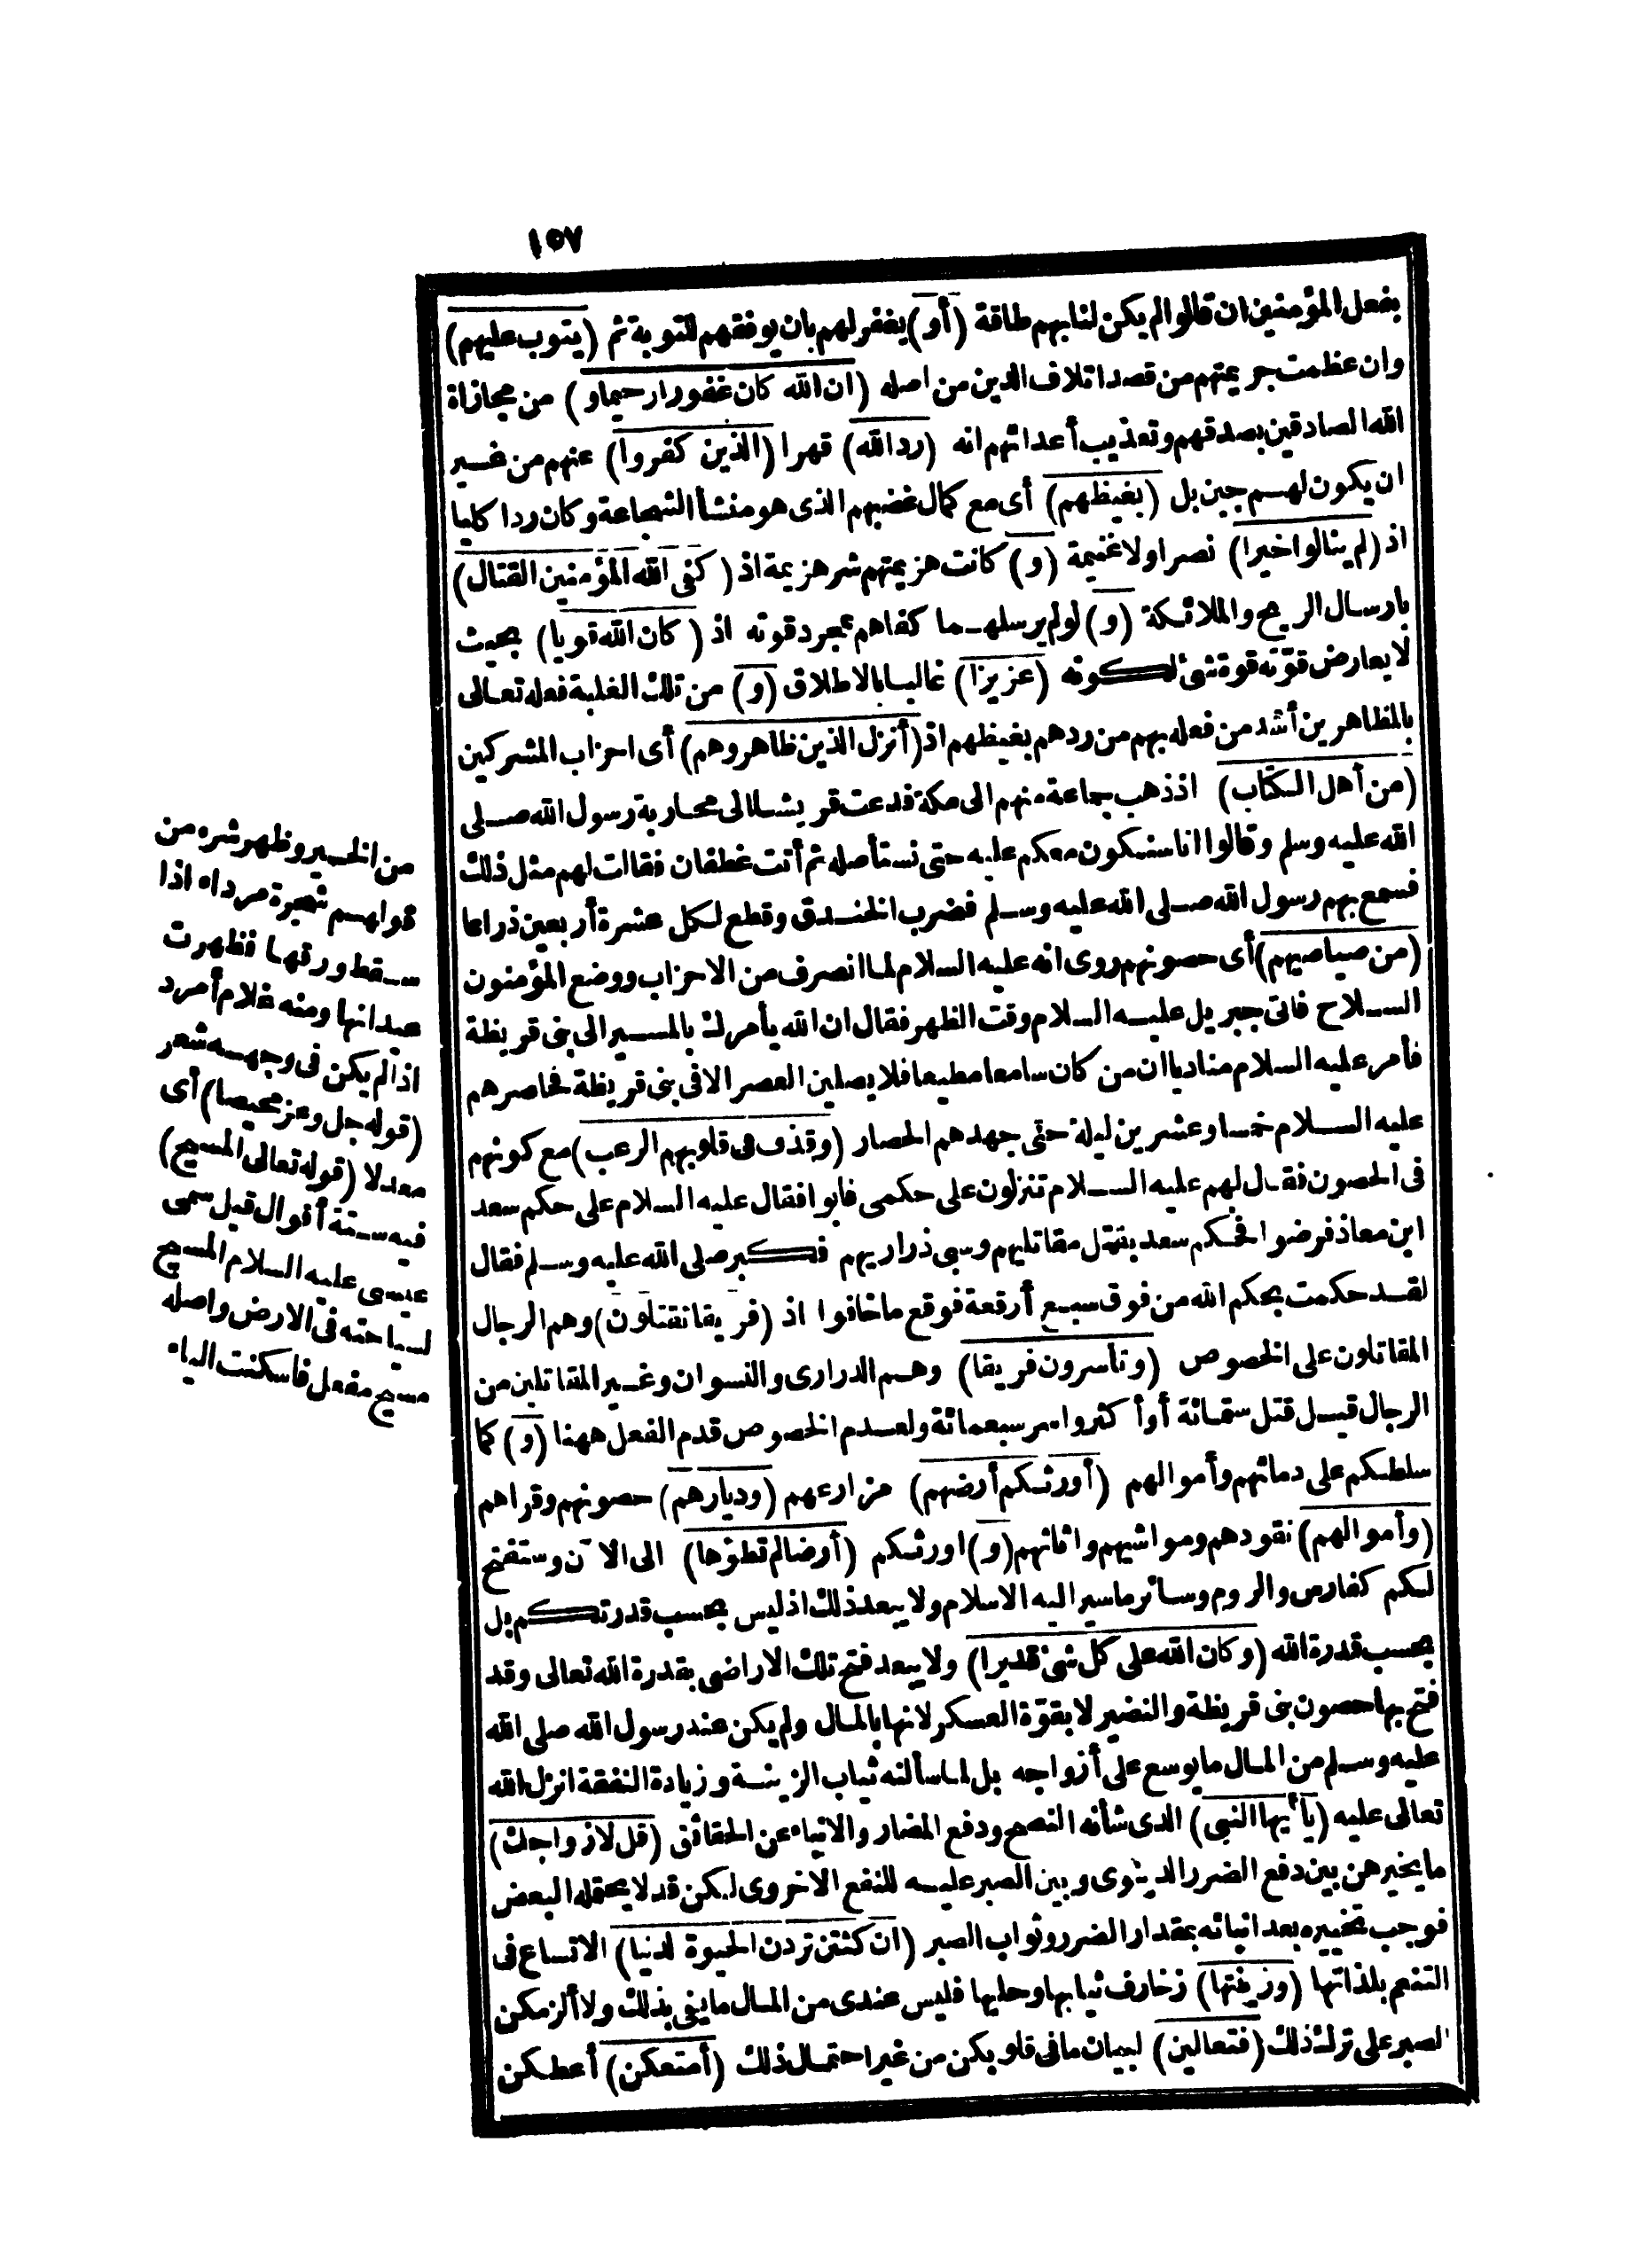 ١٥٧
بفعل المؤمنين ان قالوا لم يكن لنا بهم طاقة (أو) يغفر لهم بان يوفقهم للتوبة ثم (يتوب عليهم)
وان عظمت جريمتهم من قصد اتلاف الدين من اصله (ان الله كان غفورا رحيما و) من مجازاة
الله الصادقين بصدقهم وتعذيب أعدائهم انه (رد الله) قهرا (الذين كفروا) عنهم من غسير
ان يكون لهم جبن بل (بغيظهم) أى مع كمال غضبهم الذى هو منشأ الشجاعة وكان ردا كليا
اذ (لم ينالوا خيرا) نصرا ولا غنيمة (و) كانت هزيمتهم شر هزيمة اذ (كفى الله المؤمنين القتال)
بارسال الريح والملائكة (و) لو لم يرسلهما كفاهم بمجرد قوته اذ (كان الله قويا) بحيث
لا يعارض قوّته قوة شئ لكونه (عزيزا) غاليا بالاطلاق (و) من تلك الغلبة فعله تعالى
بالمظاهرين أشد من فعله بهم من ردهم بغيظهم اذ (أنزل الذين ظاهروهم) أى احزاب المشركين
(من أهل الكتاب) اذ ذهب جماعة منهم الى مكة فدعت قريشا الى محاربة رسول الله صلى
الله عليه وسلم وقالوا انا سنكون معكم عليه حتى نستأصله ثم أتت غطفان فقالت لهم مثل ذلك
فسمع بهم رسول الله صلى الله عليه وسلم فضرب الخندق وقطع لكل عشرة أربعين ذراعا
(من صياصيهم) أى حصونهم روى انه عليه السلام لما انصرف من الاحزاب ووضع المؤمنون
السلاح فاتى جبريل عليه السلام وقت الظهر فقال ان الله يأمرك بالمسير الى بنى قريظة
فأمر عليه السلام مناديا ان من كان سامعا مطيعا فلا يصلين العصر الا فى بنى قريظة فحاصرهم
عليه السلام خمسا وعشرين ليلة حتى جهدهم الحصار (وقذف فى قلوبهم الرعب) مع كونهم
فى الحصون فقال لهم عليه السلام تنزلون على حكمى فابوا فقال عليه السلام على حكم سعد
ابن معاذ فرضوا فحكم سعد بقتل مقاتليهم وسبى ذراريهم فكبر صلى الله عليه وسلم فقال
لقد حكمت بحكم الله من فوق سبع أرقعة فوقع ما خافوا اذ (فريقا تقتلون) وهم الرجال
المقاتلون على الخصوص (وتأسرون فريقا) وهم الدرارى والنسوان وغير المقاتلين من
الرجال قيل قتل ستمائة أو أكثر وأسر سبعمائة ولعدم الخصوص قدم الفعل ههنا (و) كما
سلطكم على دمائهم وأموالهم (أورثكم أرضهم) مزارعهم (وديارهم) حصونهم وقراهم
(وأموالهم) نقودهم ومواشيهم واثاثهم (و) اورثكم (أرضا لم تطؤها) الى الآن وستفتح
لكم كفارس والروم وسائر ما سير اليه الاسلام ولا يبعد ذلك اذ ليس بحسب قدرتكم بل
بحسب قدرة الله (وكان الله على كل شئ قديرا) ولا يبعد فتح تلك الاراضى بقدرة الله تعالى وقد
فتح بها حصون بنى قريظة والنضير لا بقوّة العسكر لانها بالمال ولم يكن عند رسول الله صلى الله
عليه وسلم من المال ما يوسع على أزواجه بل لما سألنه ثياب الزينة وزيادة النفقة انزل الله
تعالى عليه (يا أيها النبى) الذى شأنه النصح ودفع المضار والانباء عن الحقائق (قل لازواجك)
ما يخيرهن بين دفع الضرر الدنيوى وبين الصبر عليه للنفع الاخروى لكن قد لا يعقله البعض
فوجب تخييره بعد انبائه بمقدار الضرر وثواب الصبر (ان كنتن تردن الحيوة لدنيا) الاتساع فى
التنعم بلذاتها (وزينتها) زخارف ثيابها وحليها فليس عندى من المال ما يفى بذلك ولا ألزمكن
لصبر على ترك ذلك (فتعالين) لبيان ما فى قلوبكن من غير احتمال ذلك (أمتعكن) أعطكن
من الخير وظهر شره من
قولهم شجرة مرداء اذا
سقط ورقها فظهرت
عيدانها ومنه غلام أمرد
اذا لم يكن فى وجهه شعر
(قوله جل وعز محيصا) أى
معدلا (قوله تعالى المسيح)
فيه ستة أقوال قيل سمى
عيسى عليه السلام المسيح
لسياحته فى الارض واصله
مسيح مفعل فاسكنت الياء